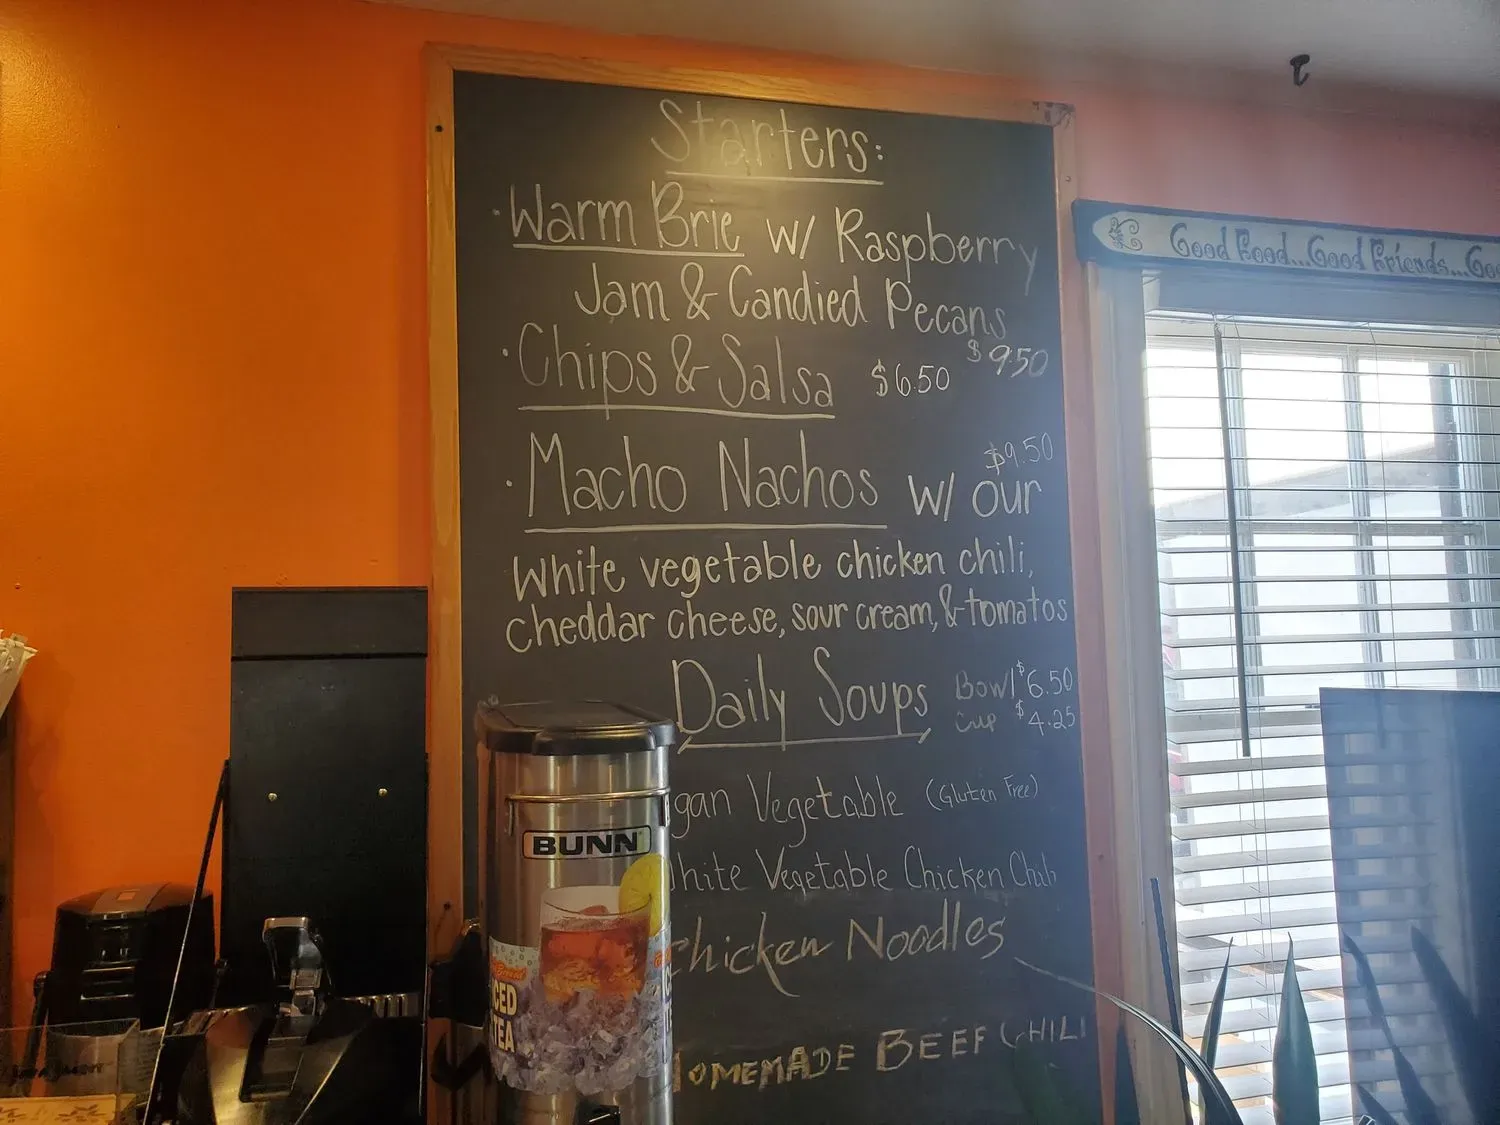 Starters:
·Warm Brie w/ Raspberry
Jam & Candied Pecans
$9.50
·Chips & Salsa $6.50
$9.50
·Macho Nachos w/ our
White vegetable chicken chili,
cheddar cheese, sour cream, & tomatos
Daily Soups Bowl $6.50
Cup $4.25
gan Vegetable (Gluten Free)
hite Vegetable Chicken Chili
chicken Noodles
HOMEMADE BEEF CHILI
Good Food...Good Friends...Goo
BUNN
ICED
TEA